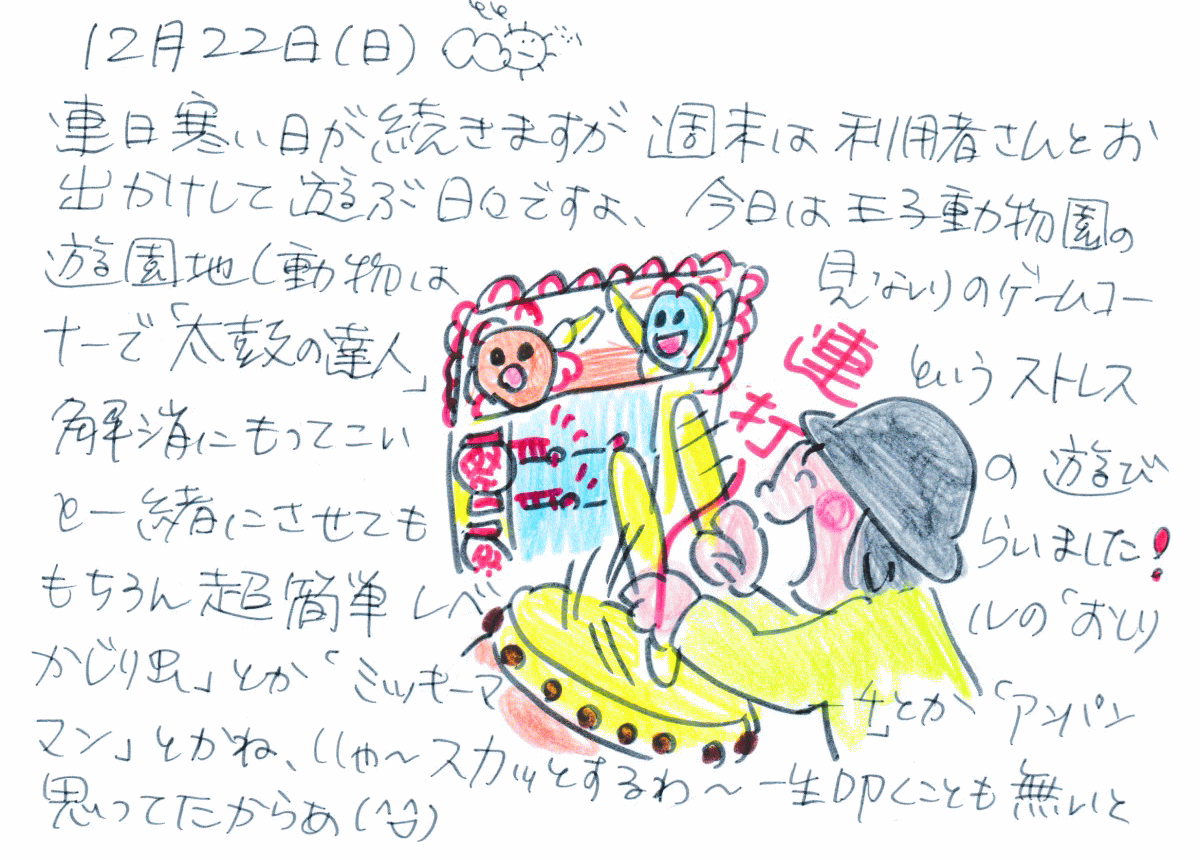 12月22日(日)
連日寒い日が続きますが 週末は利用者さんとお
出かけして遊ぶ日々ですよ、今日は王子動物園の
遊園地(動物は見ない)のゲームコー
ナーで「太鼓の達人」というストレス
解消にもってこいの遊び
を一緒にさせてもらいました!
もちろん超簡単レベルの「おしり
かじり虫」とか「ミッキーマーチ」とか「アンパン
マン」とかね、いや〜スカッとするわ〜一生叩くことも無いと
思ってたからぁ(^^)
連打